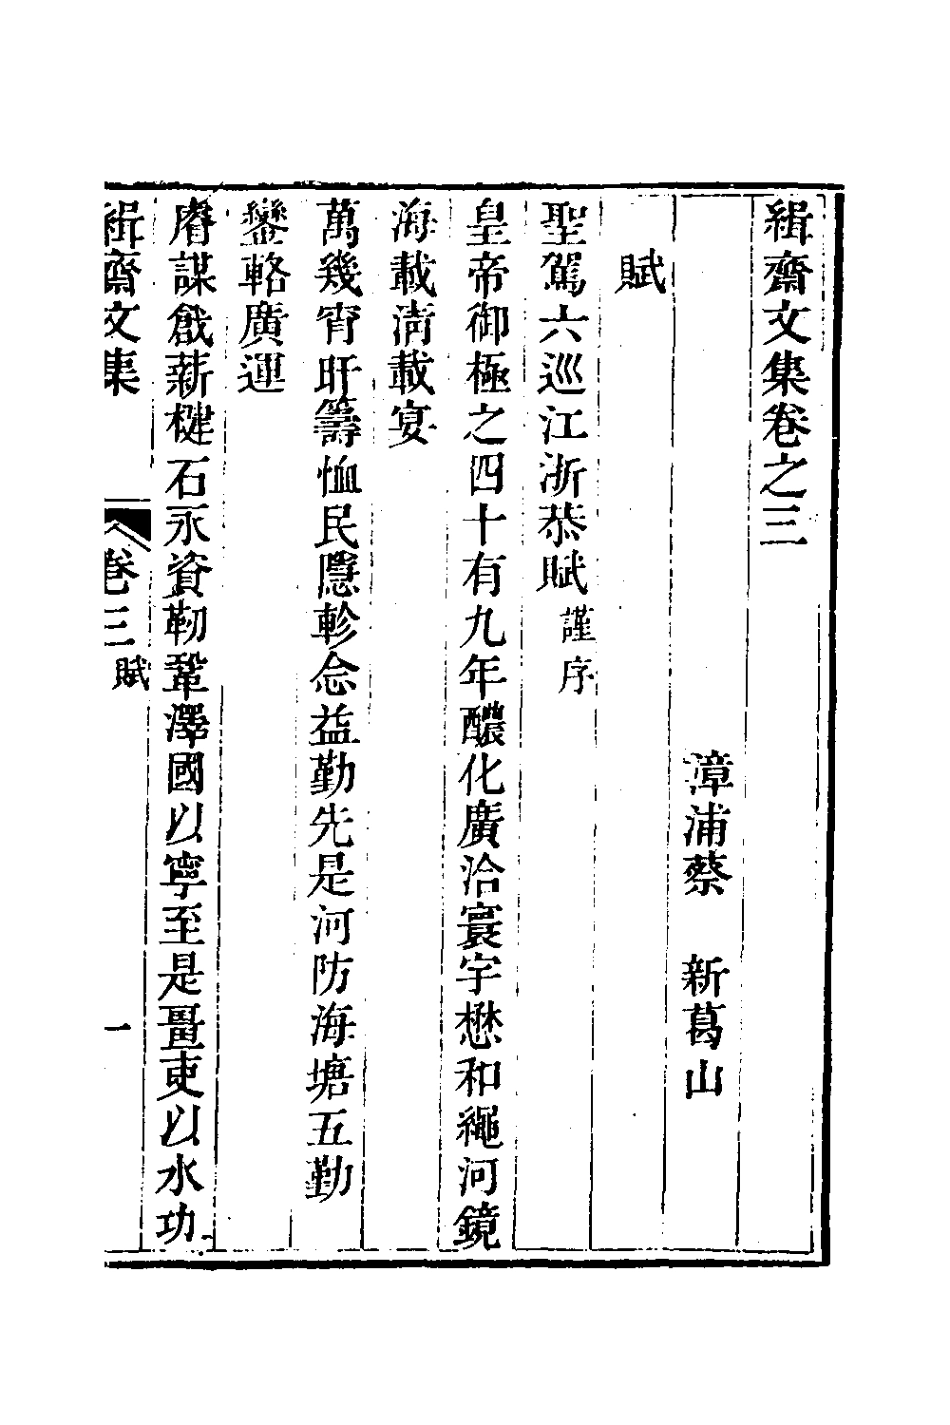 緝齋文集卷之三
漳浦蔡　新葛山
賦
聖駕六巡江浙恭賦謹序
皇帝御極之四十有九年醲化廣洽寰宇懋和繩河鏡
海載淸載宴
萬幾宵旰籌恤民隱軫念益勤先是河防海塘五勤
鑾輅廣運
睿謀戧薪楗石永資靭鞏澤國以寧至是畺吏以水功
緝齋文集　卷三賦　一